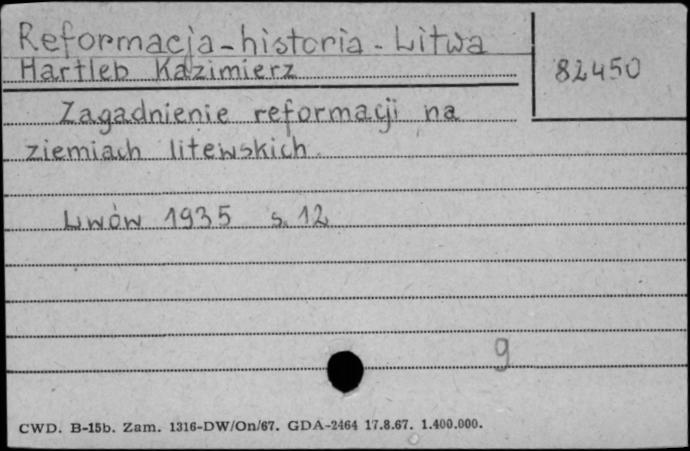 Reformacja - historia - Litwa
Hartleb Kazimierz
82450
Zagadnienie reformacji na
ziemiach litewskich.
Lwów 1935 s. 12
9
CWD. B-15b. Zam. 1316-DW/On/67. GDA-2464 17.8.67. 1.400.000.